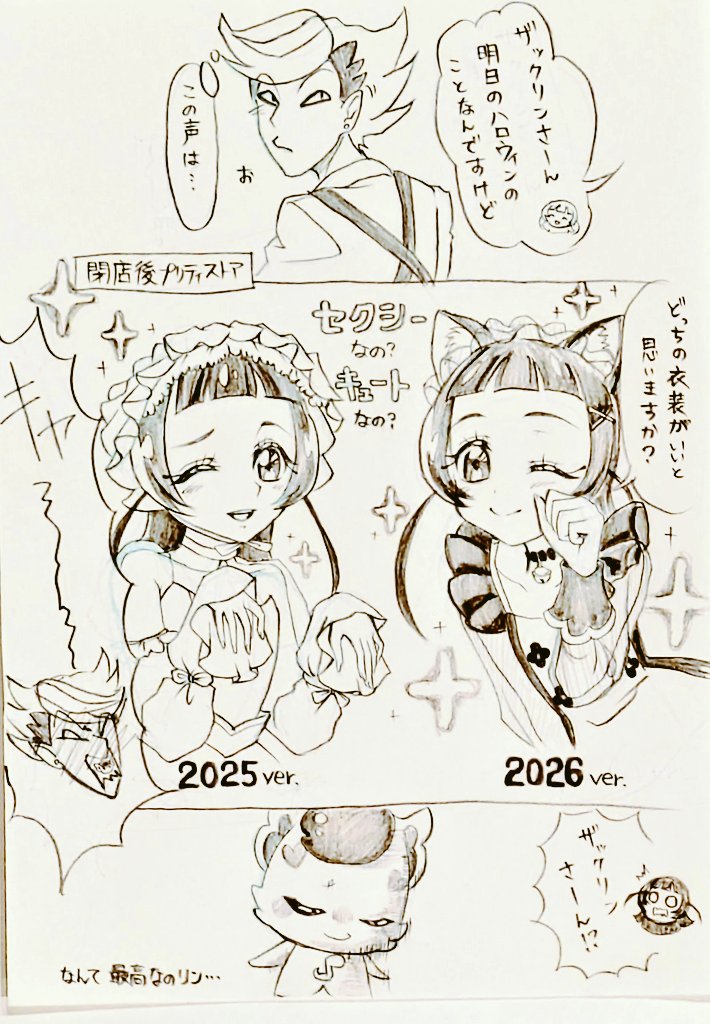 ザックリンさーん
明日のハロウィンの
ことなんですけど
お
この声は…
閉店後プリティストア
どっちの衣装がいいと
思いますか?
セクシー
なの?
キュート
なの?
キャ
2025 ver.
2026 ver.
ザックリン
さーん!?
なんて最高なのリン…